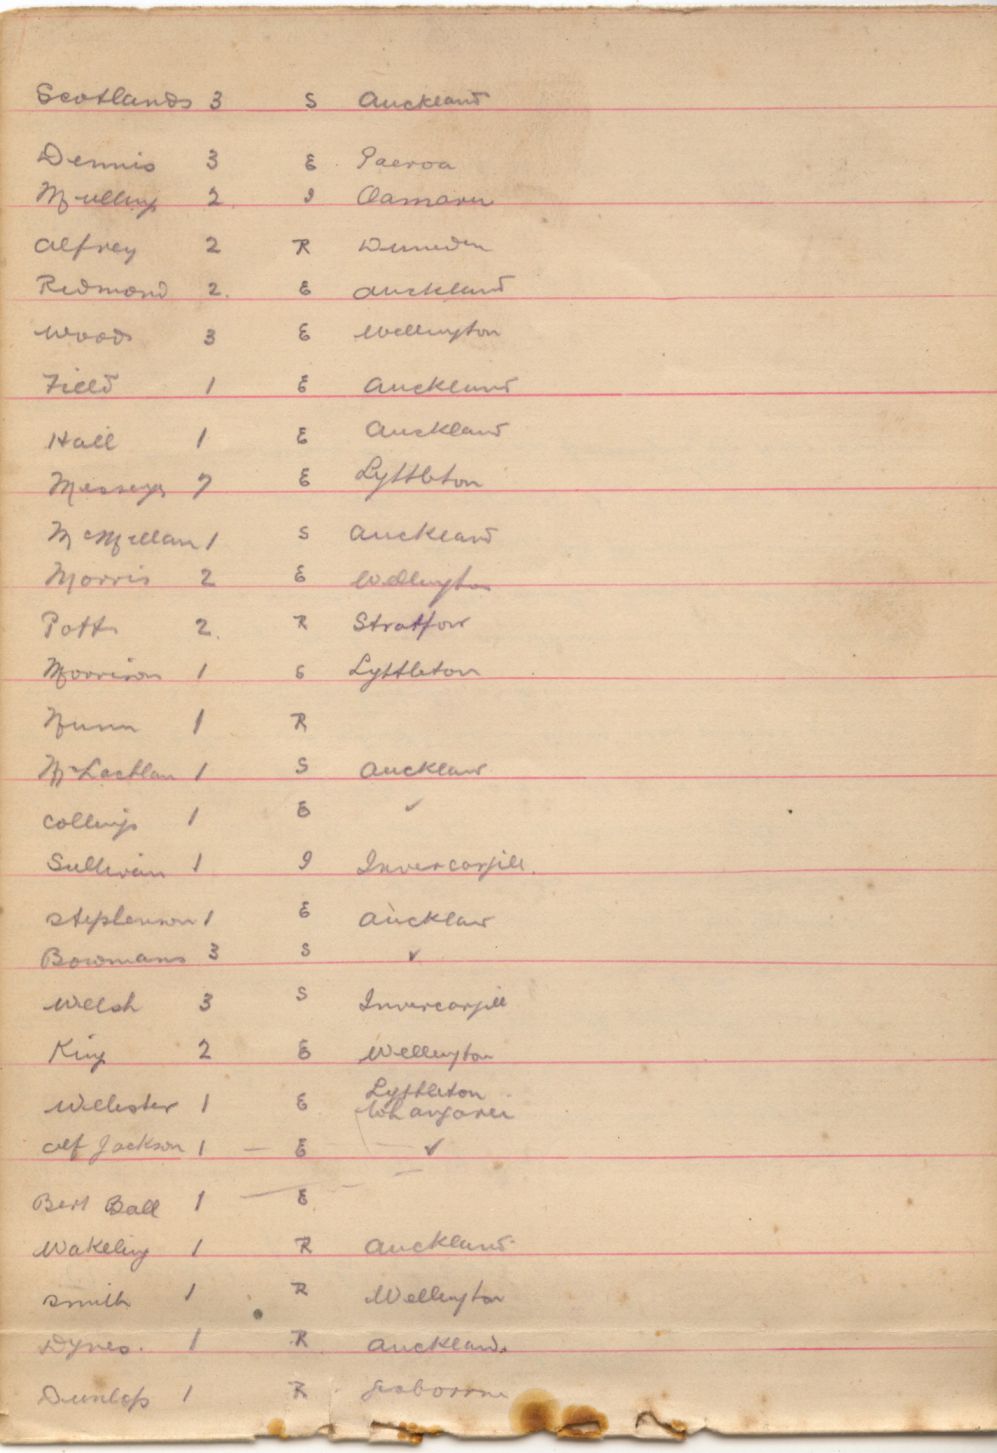 Scotlands 3 S Auckland
Dennis 3 E Paeroa
2 I Oamaru
Alfrey 2 R Dunedin
Redmond 2. E Auckland
Woods 3 E Wellington
Field 1 E Auckland
Hall 1 E Auckland
7 E Lyttleton
McMillan 1 S Auckland
Morris 2 E Wellington
Potts 2. R Stratford
Morrison 1 S Lyttleton
Nunn 1 R
McLachlan 1 S Auckland
Collings 1 E ✓
Sullivan 1 I Invercargill.
Stephenson 1 E Auckland
Bowmans 3 S ✓
Welsh 3 S Invercargill
King 2 E Wellington
Webster 1 E Lyttleton
Whangarei
Alf Jackson 1 — E — ✓
Bert Ball 1 — E
Wakeling 1 R Auckland
Smith 1 R Wellington
Dynes. 1 R Auckland.
Dunlop 1 R Gisborne